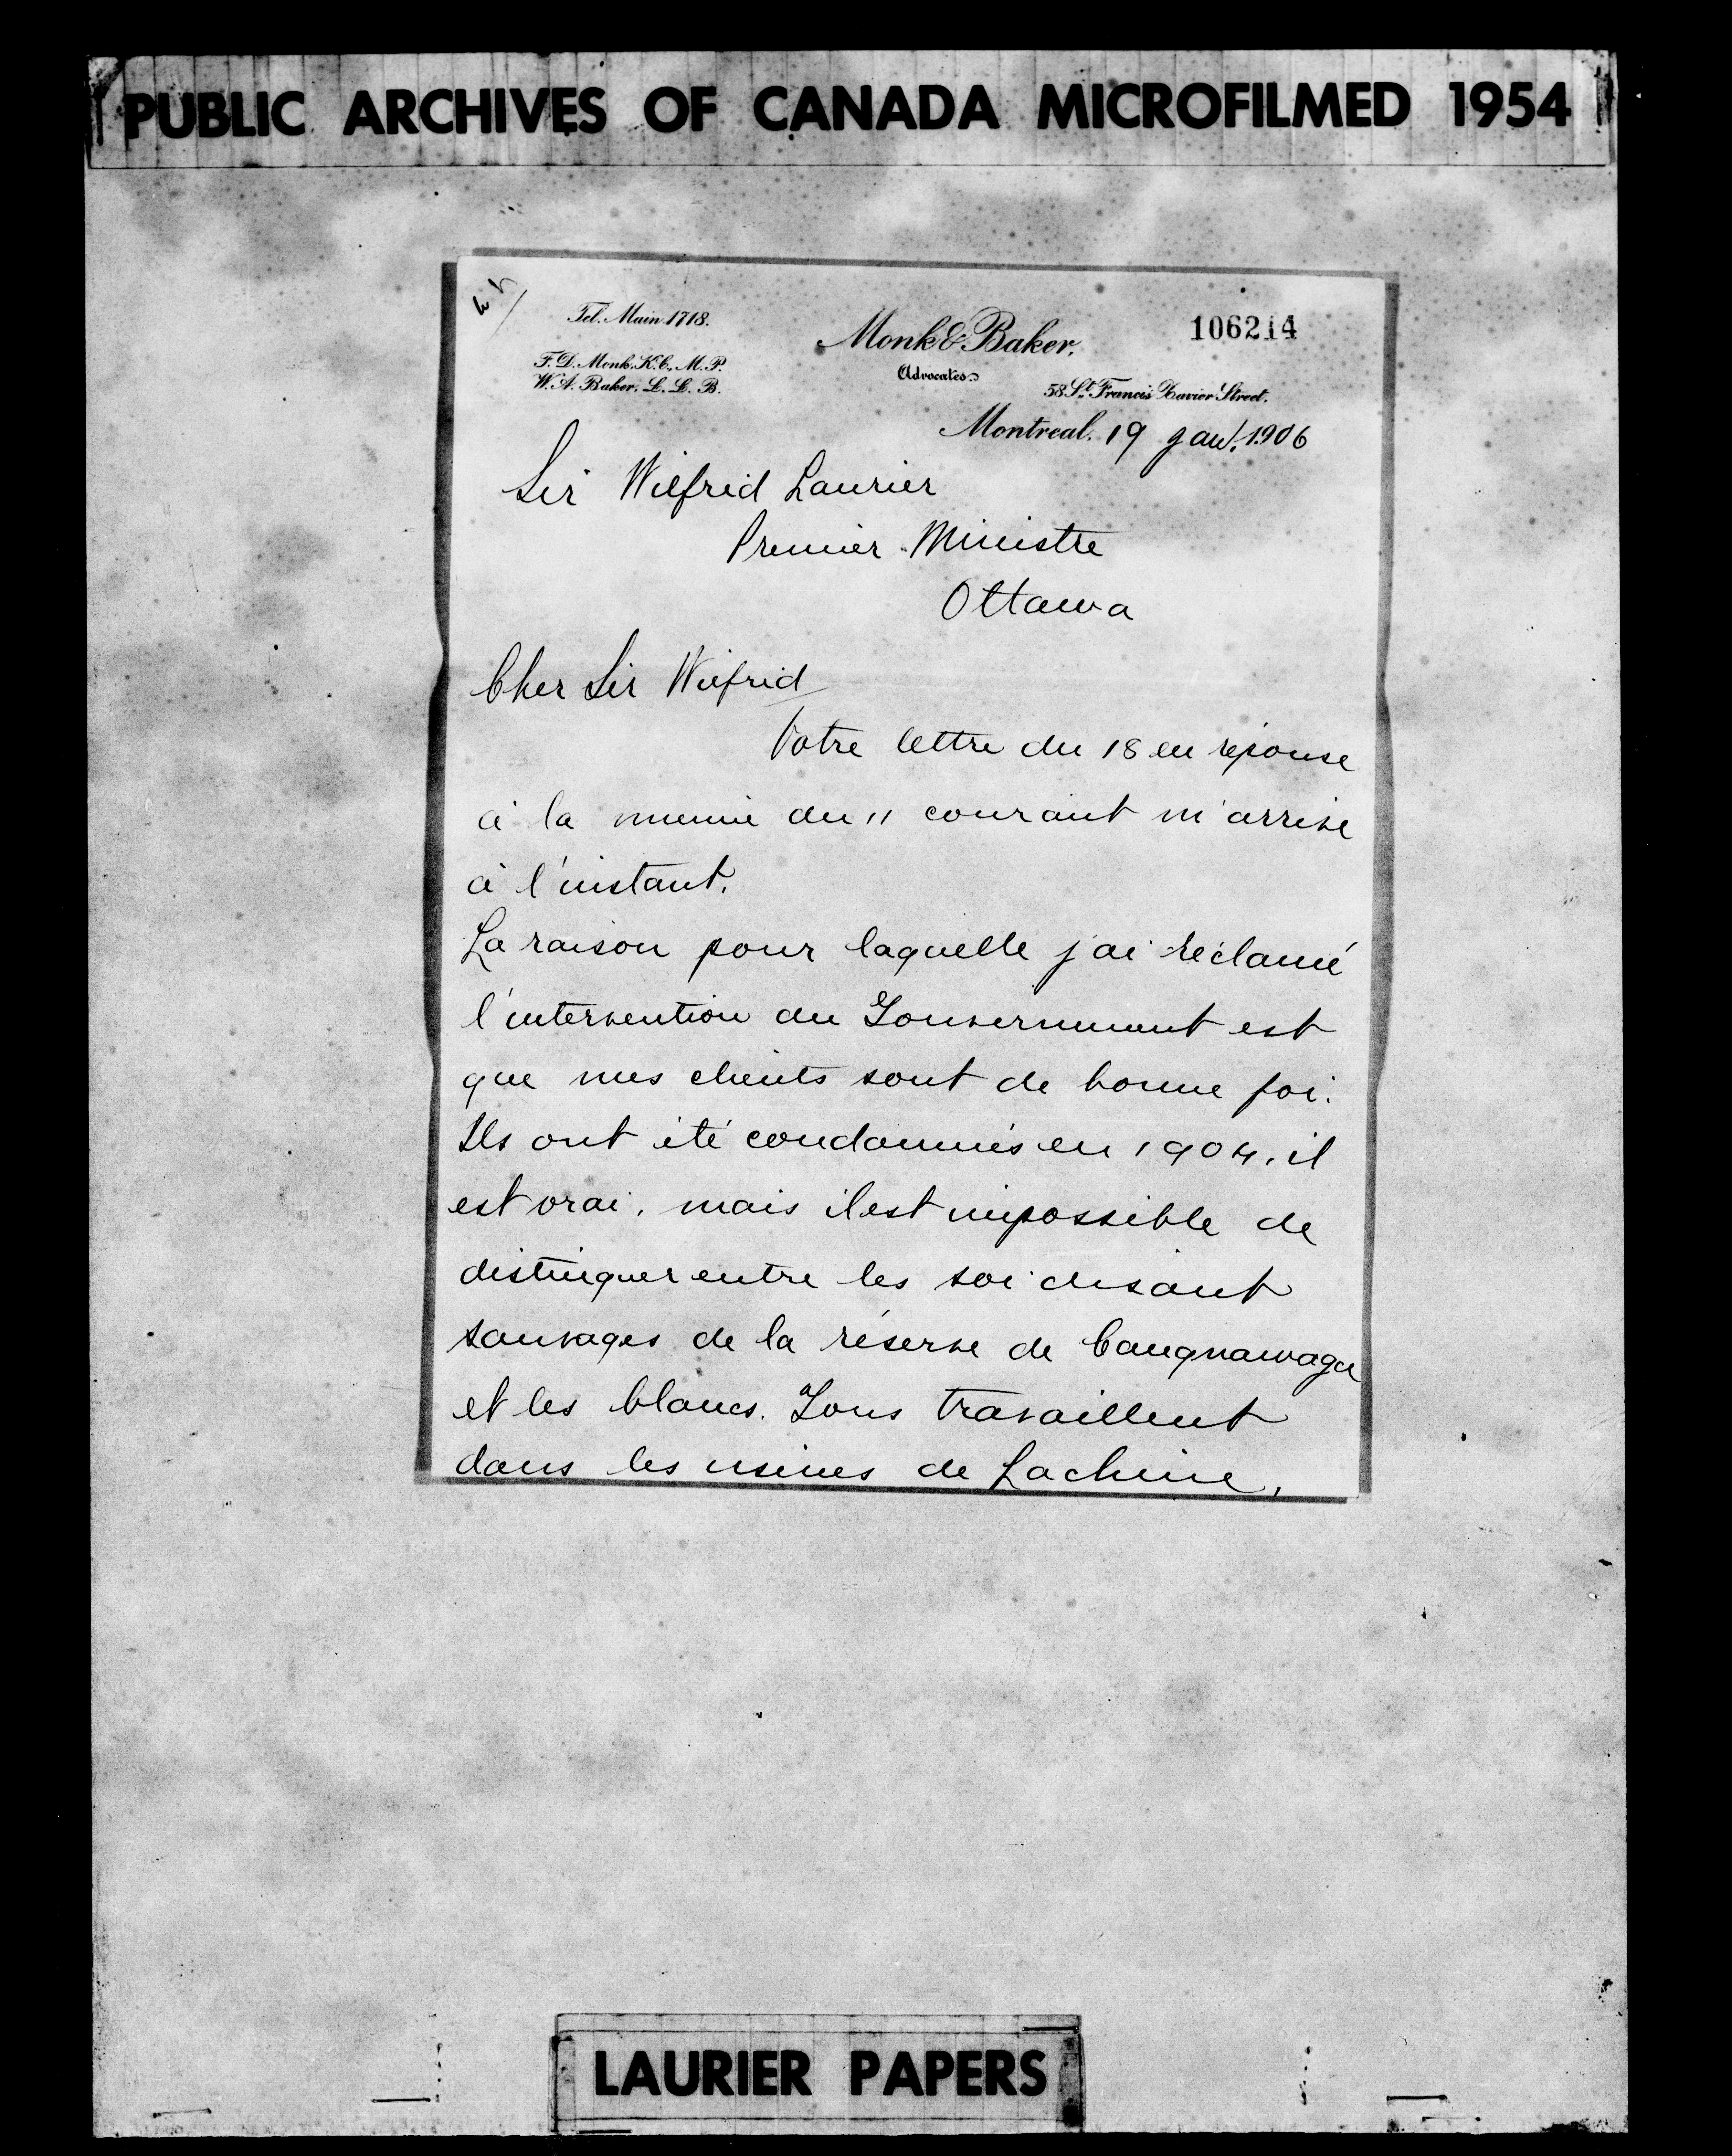 PUBLIC ARCHIVES OF CANADA MICROFILMED 1954
Tel. Main 1718.
106214
Monk & Baker.
F. D. Monk, K.C., M.P.
Advocates
W. A. Baker, L. L. B.
58 St. Francis Xavier Street.
Montreal. 19 Jan. 1906
Sir Wilfrid Laurier
Premier Ministre
Ottawa
Cher Sir Wilfrid
Votre lettre du 18 en réponse
à la mienne du 11 courant m'arrive
à l'instant.
La raison pour laquelle j'ai réclamé
l'intervention du Gouvernement est
que mes clients sont de bonne foi.
Ils ont été condamnés en 1904, il
est vrai, mais il est impossible de
distinguer entre les soi disant
sauvages de la réserve de Caugnawaga
et les blancs. Tous travaillent
dans les usines de Lachine,
LAURIER PAPERS